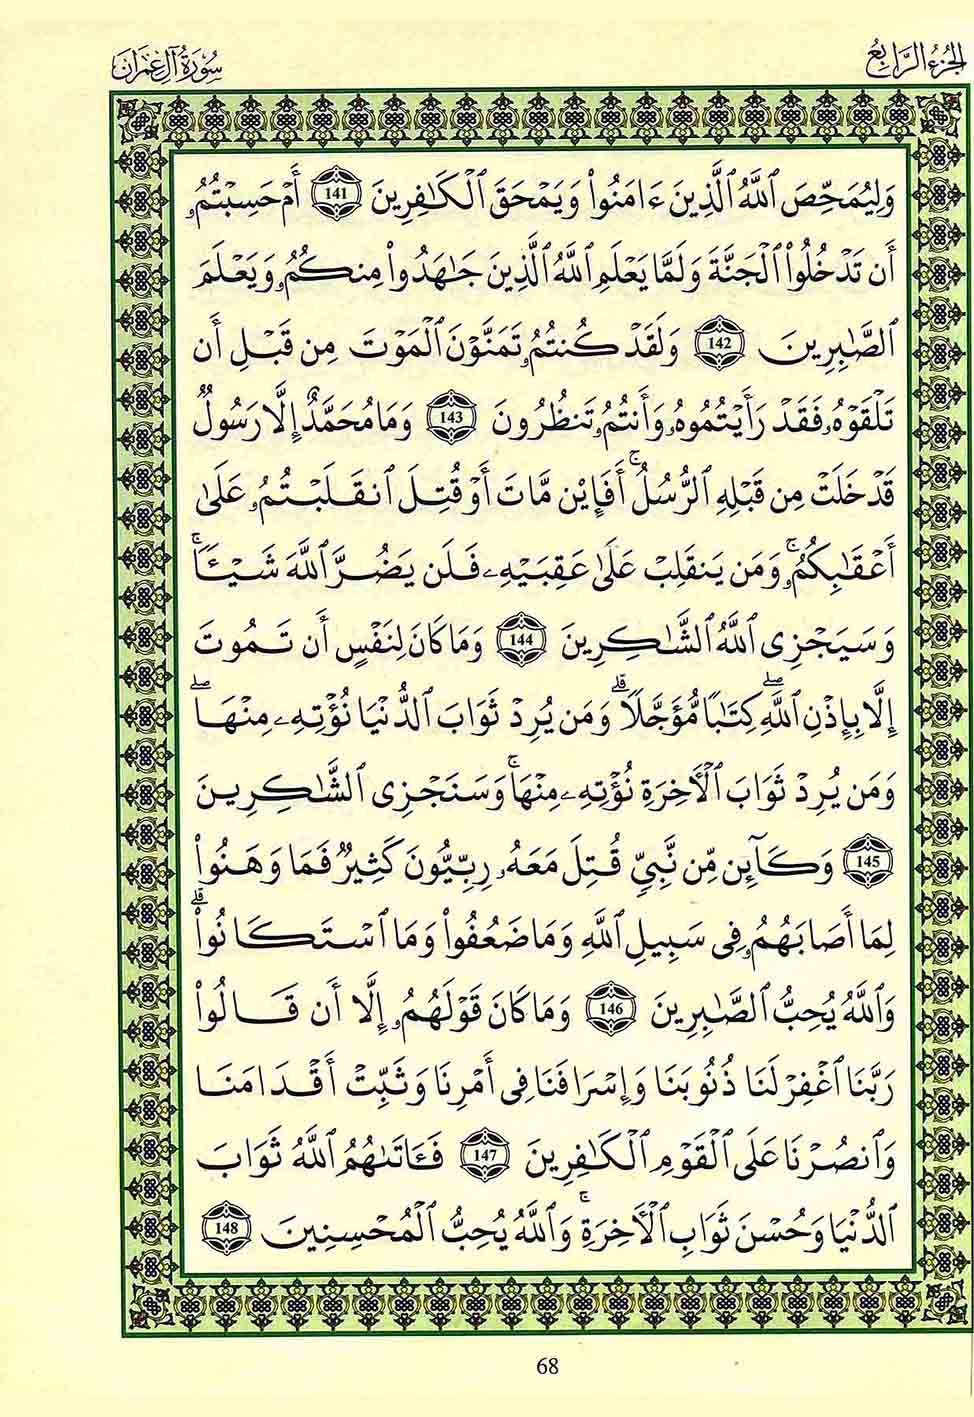 الجزء الرابع
سورة آل عمران
وَلِيُمَحِّصَ ٱللَّهُ ٱلَّذِينَ ءَامَنُوا۟ وَيَمْحَقَ ٱلْكَـٰفِرِينَ 141 أَمْ حَسِبْتُمُۥ
أَن تَدْخُلُوا۟ ٱلْجَنَّةَ وَلَمَّا يَعْلَمِ ٱللَّهُ ٱلَّذِينَ جَـٰهَدُوا۟ مِنكُمُۥ وَيَعْلَمَ
ٱلصَّـٰبِرِينَ 142 وَلَقَدْ كُنتُمُۥ تَمَنَّوْنَ ٱلْمَوْتَ مِن قَبْلِ أَن
تَلْقَوْهُۥ فَقَدْ رَأَيْتُمُوهُۥ وَأَنتُمُۥ تَنظُرُونَ 143 وَمَا مُحَمَّدٌ إِلَّا رَسُولٌ
قَدْ خَلَتْ مِن قَبْلِهِ ٱلرُّسُلُ ۚ أَفَإِي۟ن مَّاتَ أَوْ قُتِلَ ٱنقَلَبْتُمُۥ عَلَىٰ
أَعْقَـٰبِكُمُۥ ۚ وَمَن يَنقَلِبْ عَلَىٰ عَقِبَيْهِۦ فَلَن يَضُرَّ ٱللَّهَ شَيْـًٔا ۚ
وَسَيَجْزِى ٱللَّهُ ٱلشَّـٰكِرِينَ 144 وَمَا كَانَ لِنَفْسٍ أَن تَمُوتَ
إِلَّا بِإِذْنِ ٱللَّهِ ۖ كِتَـٰبًا مُّؤَجَّلًا ۗ وَمَن يُرِدْ ثَوَابَ ٱلدُّنْيَا نُؤْتِهِۦ مِنْهَا ۖ
وَمَن يُرِدْ ثَوَابَ ٱلْـَٔاخِرَةِ نُؤْتِهِۦ مِنْهَا ۚ وَسَنَجْزِى ٱلشَّـٰكِرِينَ
145 وَكَآئِن مِّن نَّبِيٍّ قُتِلَ مَعَهُۥ رِبِّيُّونَ كَثِيرٌ فَمَا وَهَنُوا۟
لِمَا أَصَابَهُمُۥ فِى سَبِيلِ ٱللَّهِ وَمَا ضَعُفُوا۟ وَمَا ٱسْتَكَانُوا۟ ۗ
وَٱللَّهُ يُحِبُّ ٱلصَّـٰبِرِينَ 146 وَمَا كَانَ قَوْلَهُمُۥ إِلَّا أَن قَالُوا۟
رَبَّنَا ٱغْفِرْ لَنَا ذُنُوبَنَا وَإِسْرَافَنَا فِى أَمْرِنَا وَثَبِّتْ أَقْدَامَنَا
وَٱنصُرْنَا عَلَى ٱلْقَوْمِ ٱلْكَـٰفِرِينَ 147 فَـَٔاتَىٰهُمُ ٱللَّهُ ثَوَابَ
ٱلدُّنْيَا وَحُسْنَ ثَوَابِ ٱلْـَٔاخِرَةِ ۚ وَٱللَّهُ يُحِبُّ ٱلْمُحْسِنِينَ 148
68